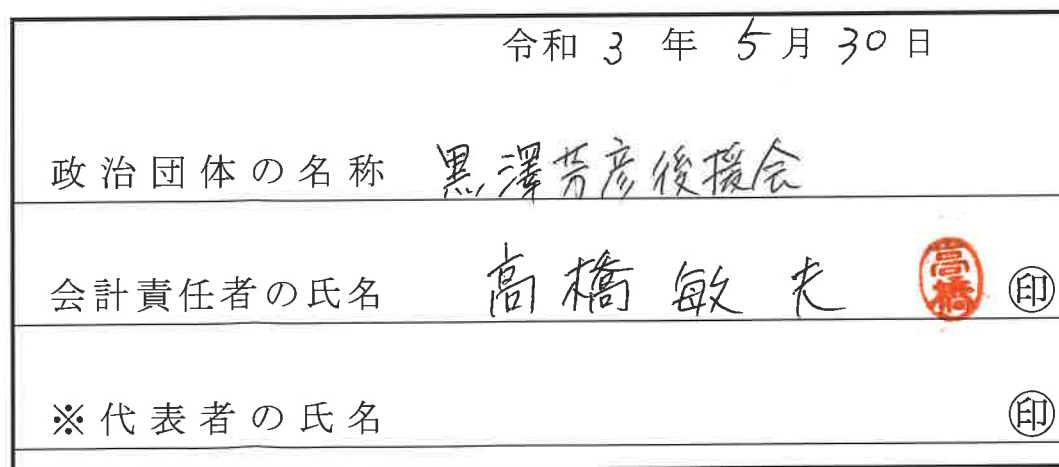 令和 3 年 5月 30日
政治団体の名称 黒澤芳彦後援会
会計責任者の氏名 高橋敏夫 高橋 ㊞
※代表者の氏名 ㊞